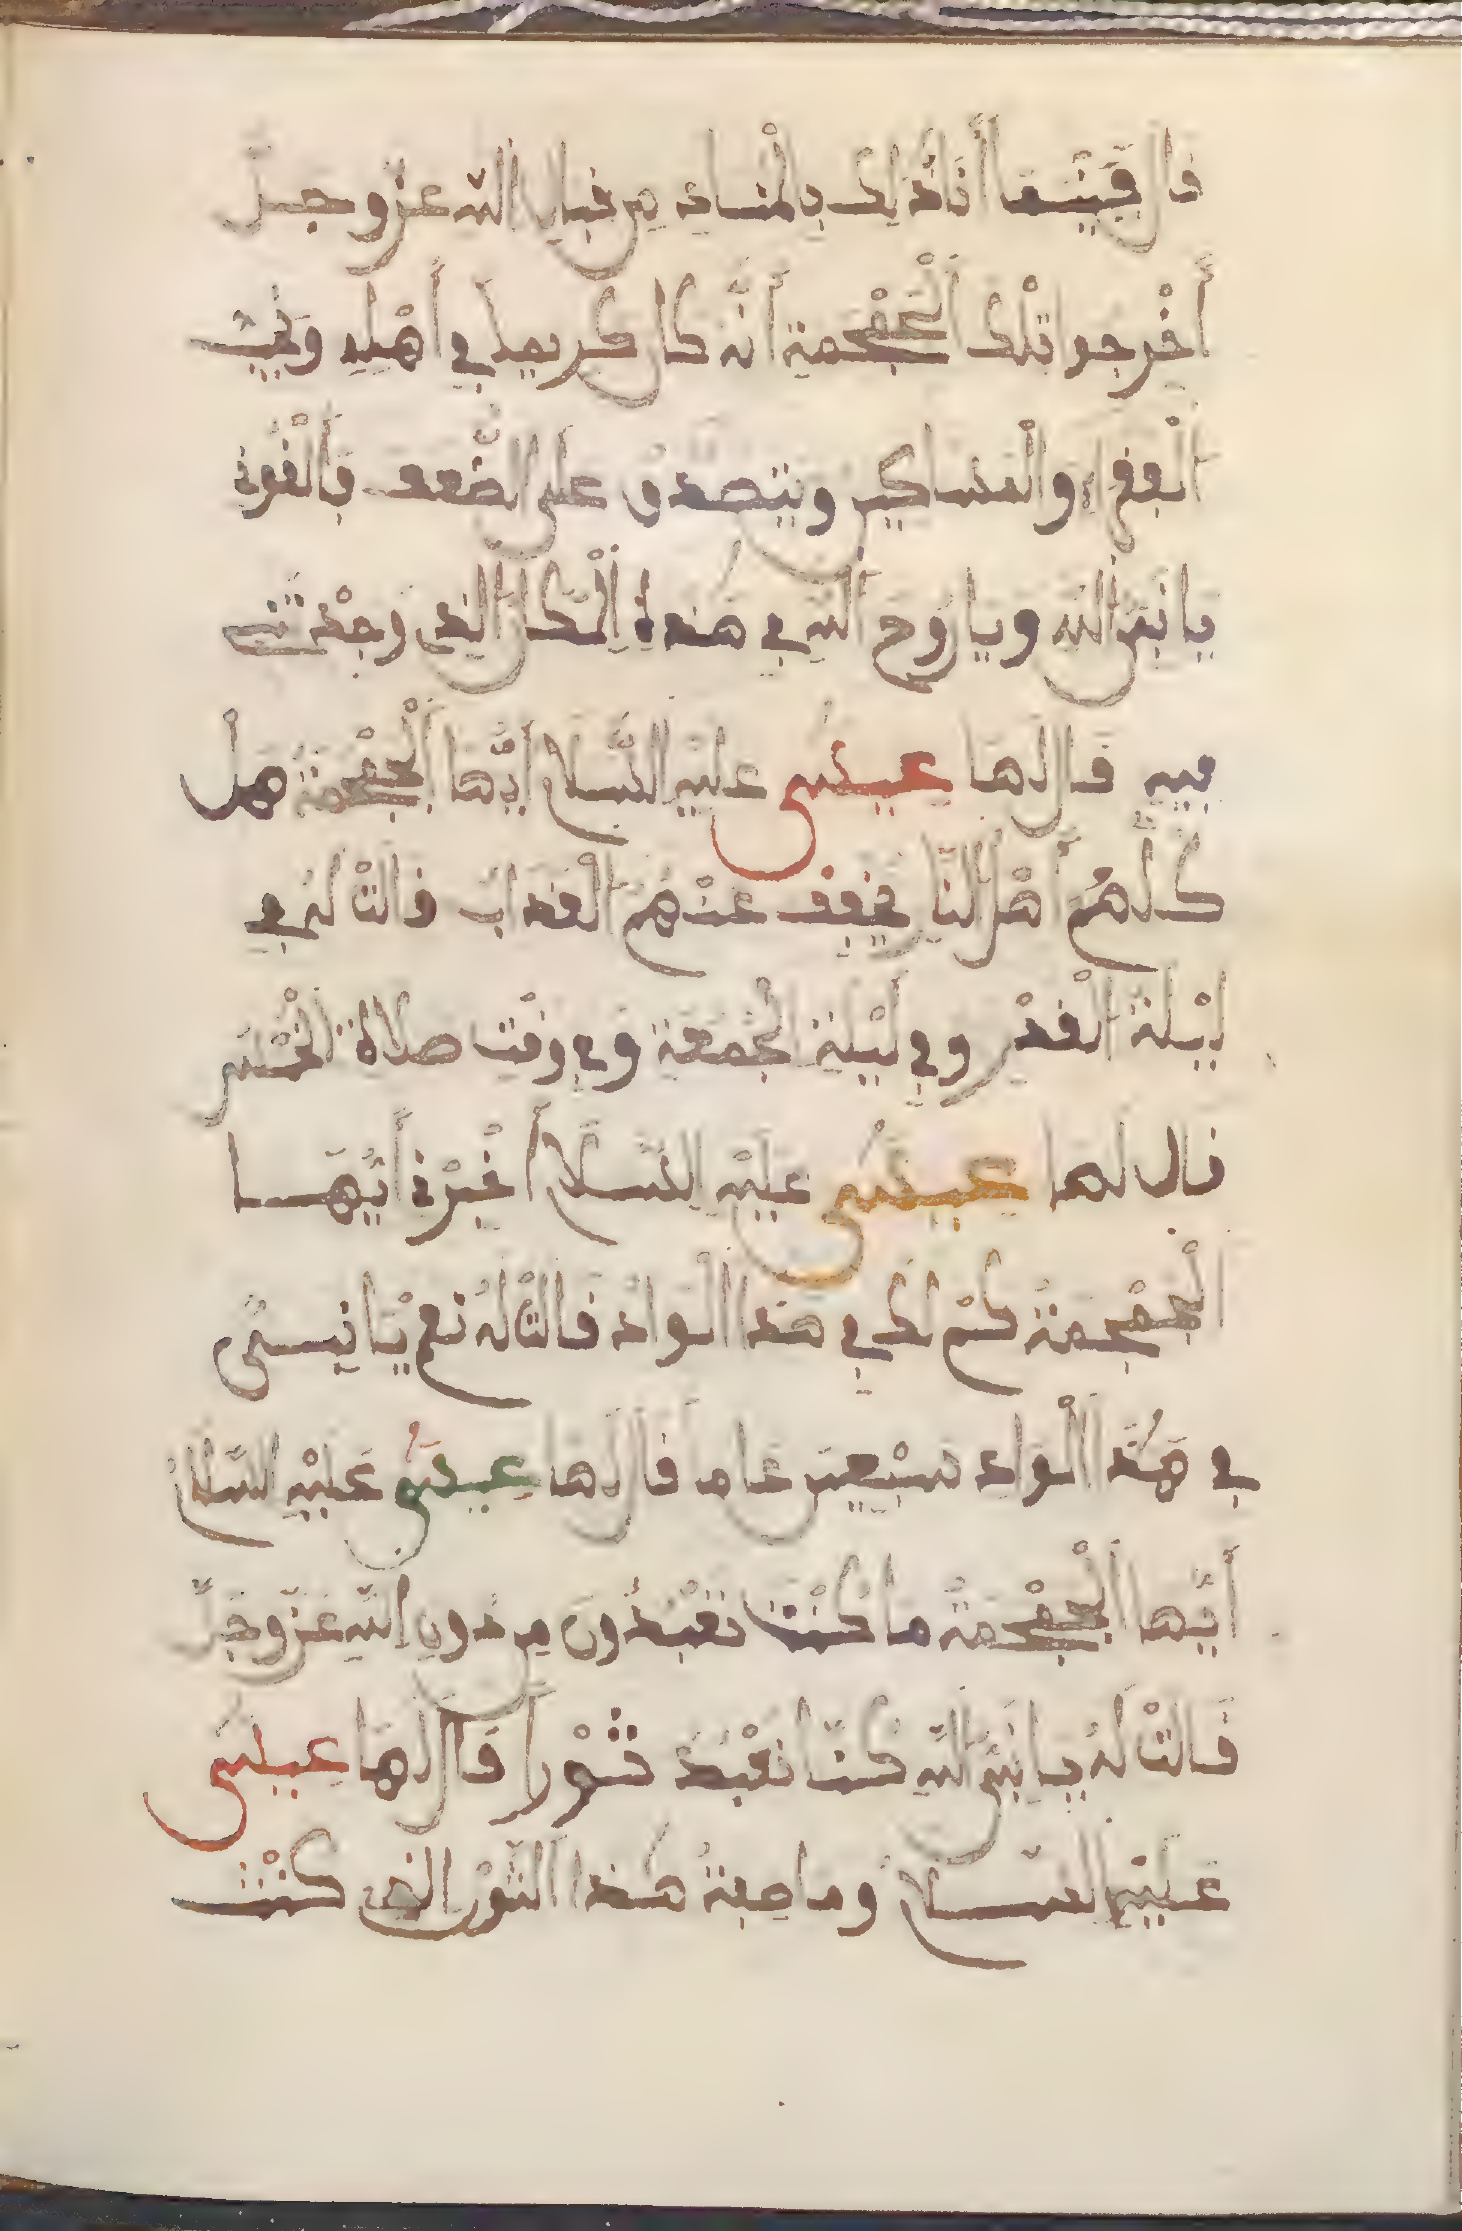 قال فبينما أنا كذلك بالمناد من قبل الله عز وجل
أخرجوا تلك الجمجمة أنه كان كريما في أهله ويحب
الفقراء والمساكين ويتصدق على الضعف فألقوني
يا نبي الله ويا روح الله في هذا المكان الذي وجدتني
فيه قال لها عيسى عليه السلام أيها الجمجمة هل
كلهم أهل النار يخفف عنهم العذاب قالت له في
ليلة القدر وفي ليلة الجمعة وفي وقت صلاة الخمس
قال لها عيسى عليه السلام أخبرني أيها
الجمجمة كم لك في هذا الواد قالت له نعم يا
في هذا الواد سبعين عاما قال لها عيسى عليه السلام
أيها الجمجمة ما كنت تعبدون من دون الله عز وجل
قالت له يا نبي الله كنا نعبد ثورا قال لها عيسى
عليه السلام وما صفة هذا الثور الذي كنت